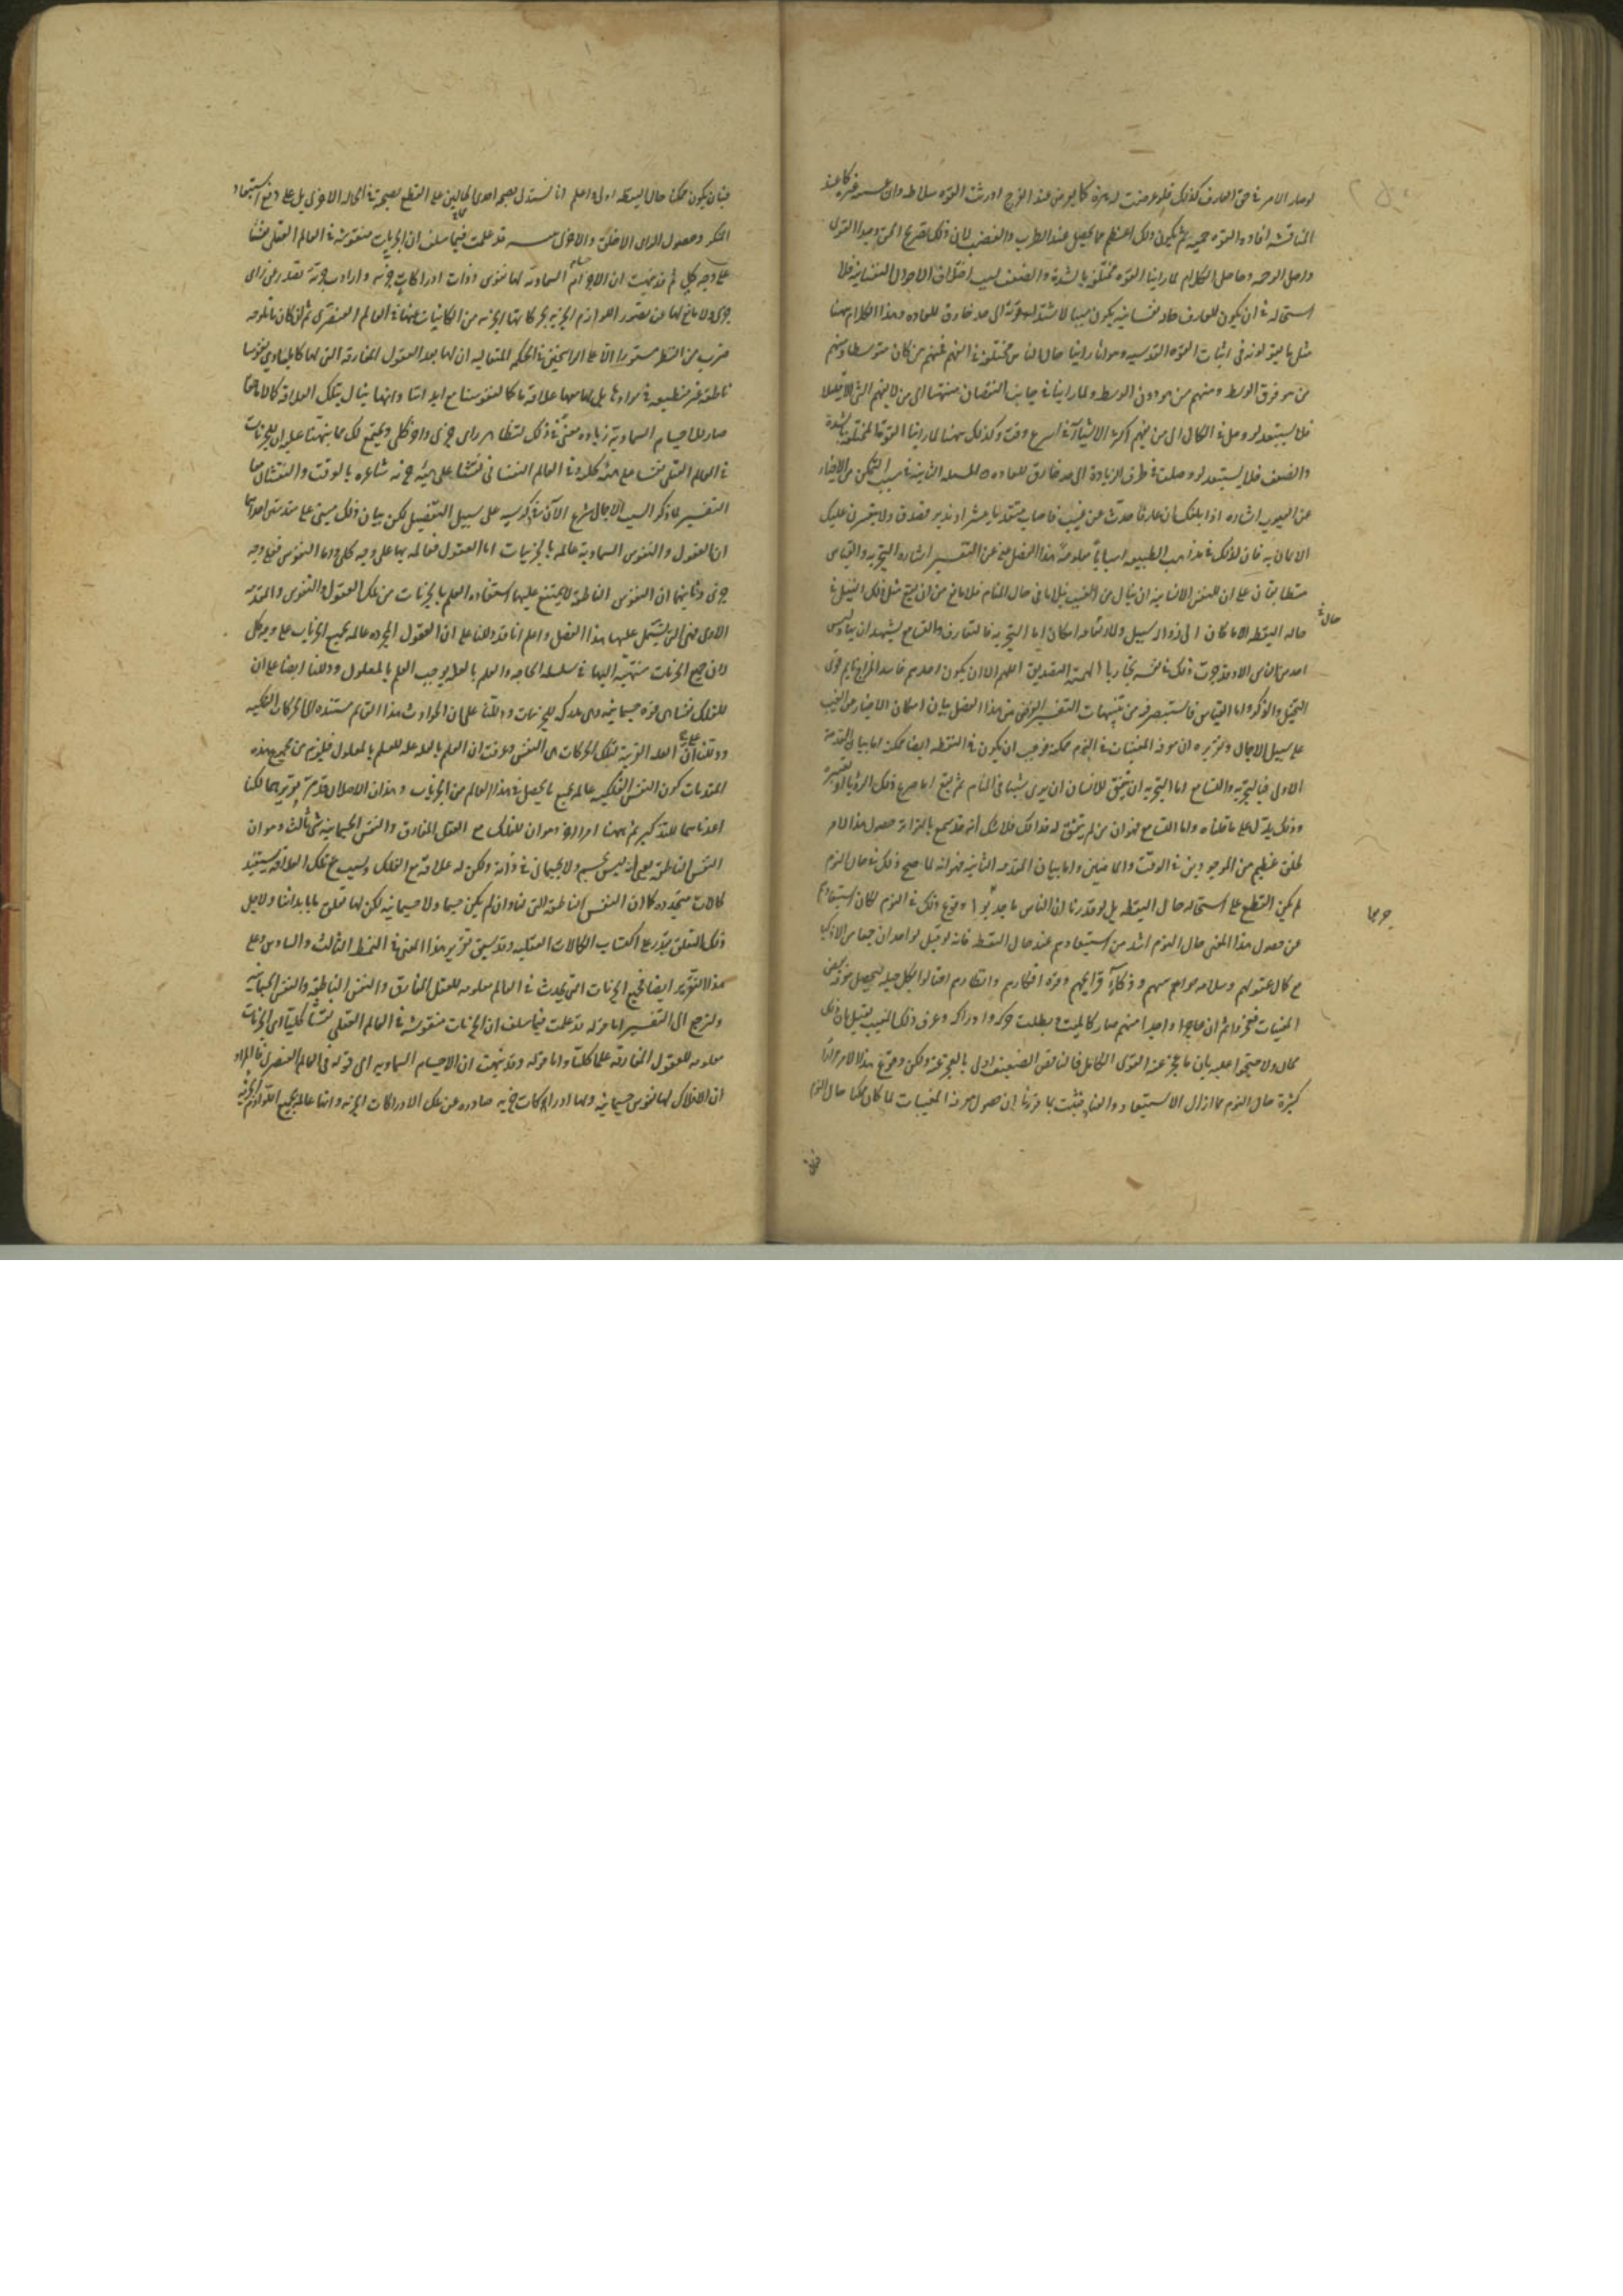 لوصار الامر فى حق العارف كذلك فلو عرضت له هزة كما يعرض عند الفرح اورثت القوه سلاطه وان غشيه غيره كما عند
المنافسه افاده القوه حميه ثم يكون ذلك اعظم مما يحصل عند الطرب والغضب لان ذلك بصريح الحق ومبدا القوى
واصل الرحمه وحاصل الكلام لما راينا القوه مختلفه بالشدة والضعف لسبب اختلاف الاحوال النفسانيه فلا
استحاله فى ان يكون للعارف حاله نفسانيه يكون سببا لاشتداد قوته الى حد خارق للعاده وهذا الكلام ههنا
مثل ما يقولونه فى اثبات القوه القدسيه وهو انا راينا حال الناس مختلفه فى الفهم فمنهم من كان متوسطا ومنهم
من هو فوق الوسط ومنهم من هو دون الوسط ولما راينا فى جانب النقصان منتهيا الى من لا يفهم الشئ الا قليلا
فلا يستبعد لو وصل فى الكمال الى من يفهم اكثر الاشياء فى اسرع وقت وكذلك ههنا لما راينا القوة مختلفه بالشدة
والضعف فلا يستبعد لو وصلت فى طرف الزيادة الى حد خارق للعاده المسله الثانيه فى سبب التمكن من الاخبار
عن الغيوب اشاره اذا بلغك ان عارفا حدث عن غيب فاصاب متقدما ببشرى او نذير فصدق ولا يتعسرن عليك
الايمان به فان لذلك فى مذاهب الطبيعه اسبابا معلومة هذا الفصل غنى عن التفسير اشاره التجربه والقياس
متطابقان على ان للنفس الانسانيه ان ينال من الغيب نيلا ما فى حال المنام فلا مانع من ان يقع مثل ذلك النيل فى
حال
حاله اليقظه الا ما كان الى زواله سبيل ولارتفاعه امكان اما التجربه فالتعارف والتسامع يشهدان بها وليس
احد من الناس الا وقد جرب ذلك فى نفسه تجاربا الهمته التصديق اللهم الا ان يكون احدهم فاسد المزاج نايم قوى
التخيل والذكر واما القياس فاستبصر فيه من تنبيهات التفسير الغرض من هذا الفصل بيان امكان الاخبار عن الغيب
على سبيل الاجمال وتقريره ان معرفه المغيبات فى النوم ممكنه فوجب ان يكون فى اليقظه ايضا ممكنه اما بيان المقدمة
الاولى فبالتجربه والتسامع اما التجربه ان يتفق للانسان ان يرى شيئا فى المنام ثم يقع اما صريح ذلك الرويا او تعبيره
وذلك يدل على ما قلناه واما التسامع فهو ان من لم يتفق له هذا لكن فلا شك انه قد سمع بالتواتر حصول هذا الامر
لخلق عظيم من الموجودين فى الوقت والماضين واما بيان المقدمه الثانيه فهو انه لما صح ذلك فى حال النوم
لم يكن القطع على استحاله حال اليقظه بل لو قدرنا ان الناس ما جربوا وقوع ذلك فى النوم لكان استبعادهم
جربوا
عن حصول هذا المعنى حال النوم اشد من استبعادهم عند حال اليقظه فانه لو قيل لواحد ان جماعه من الاذكيا
مع كمال عقولهم وسلامه حواسهم وذكاء قرايحهم وقوة افكارهم وانظارهم احتالوا بكل حيله لتحصيل معرفه بعض
المغيبات فعجزوا ثم ان واحدا منهم صار كالميت وبطلت حركته وادراكه وعرف ذلك الغيب يقينا بان ذلك
محال ولاحتجوا عليه بان ما عجز عنه القوى الكامل فالناقص الضعيف اولى بالعجز عنه ولكن وقوع هذا الامر مرارا
كثيرة حال النوم مما ازال الاستبعاد والعناد فثبت بما قررنا ان حصول معرفه المغيبات لما كان ممكنا حال النوم
فبان يكون ممكنا حال اليقظه اولى واعلم انا نستدل بصحه احدى الحالتين على القطع بصحته فى الحاله الاخرى بل على دفع استبعاد
المنكر وحصول الراى الاخلق والاحرى تنبيه قد علمت فيما سلف ان الجزئيات منقوشه فى العالم العقلى نقشا
على وجه كلى ثم قد نبهت ان الاجرام السماويه لها نفوس ذوات ادراكات جزئيه وارادات جزئيه تصدر عن راى
جزئى ولا مانع لها عن تصور اللوازم الجزئيه لحركاتها الجزئيه من الكائنات عنها فى العالم العنصرى ثم ان كان ما يلوحه
ضرب من النظر مستورا الا على الراسخين فى الحكمه المتعاليه ان لها بعد العقول المفارقه التى لها كالمبادى نفوسا
ناطقه غير منطبعه فى موادها بل لها معها علاقه ما كما لنفوسنا مع ابداننا وانها ينال بتلك العلاقه كمالا ما حقا
صار للاجسام السماويه زياده معنى فى ذلك لتظاهر راى جزئى واخر كلى ويجتمع لك مما نبهنا عليه ان للجزئيات
فى العالم العقلى نقشا على هيئه كليه وفى العالم النفسانى نقشا على هيئه جزئيه شاعره بالوقت والنقشان معا
التفسير لما ذكر السبب الاجمالى شرع الان فى ذكر سببه على سبيل التفصيل لكن بيان ذلك مبنى على مقدمتين احداهما
ان العقول والنفوس السماويه عالمه بالجزئيات اما العقول فعالمه بها على وجه كلى واما النفوس فعلى وجه
جزئى وثانيهما ان النفوس الناطقه لا يمتنع عليها استفاده العلم بالجزئيات من تلك العقول والنفوس والمقدمه
الاولى هى التى يشتمل عليها هذا الفصل واعلم انا قد دللنا على ان العقول المجرده عالمه بجميع الجزئيات على وجه كلى
لان جميع الجزئيات منتهيه اليها فى سلسله الحاجه والعلم بالعله يوجب العلم بالمعلول ودللنا ايضا على ان
للفلك نفسا هى قوه جسمانيه وهى مدركه للجزئيات ودللنا على ان الحوادث هذا العالم مستنده الى الحركات الفلكيه
ودللنا على ان العله القريبه لتلك الحركات هى النفس وعرفت ان العلم بالعله عله للعلم بالمعلول فيلزم من مجموع هذه
المقدمات كون النفس الفلكيه عالمه بجميع ما يحصل فى هذا العالم من الجزئيات وهذان الاصلان قد مر تقريرهما لكنا
اعدناهما للتذكير ثم ههنا امر اخر وهو ان للفلك مع العقل المفارق والنفس الجسمانيه شئ ثالث وهو ان
النفس الناطقه يعنى انه ليس بجسم ولا جسمانى فى ذاته ولكن له علاقه مع الفلك وبسبب تلك العلاقه يستفيد
كمالات متجدده كما ان النفس الناطقه التى لنا وان لم يكن جسما ولا جسمانيه لكن لها تعلق ما بابداننا ولاجل
ذلك التعلق يقدر على اكتساب الكمالات العقليه وقد سبق تقرير هذا المعنى فى النمط الثالث والسادس وعلى
هذا التقرير ايضا فجميع الجزئيات التى تحدث فى العالم معلومه للعقل المفارق والنفس الناطقه والنفس الجسمانيه
ولنرجع الى التفسير اما قوله قد علمت فيما سلف ان الجزئيات منقوشه فى العالم العقلى نقشا كليا اى الجزئيات
معلومه للعقول المفارقه علما كليا واما قوله وقد نبهت ان الاجسام السماويه الى قوله فى العالم العنصرى فالمراد
ان الافلاك لها نفوس جسمانيه ولها ادراكات جزئيه صادره عن تلك الادراكات الجزئيه وانها عالمه بجميع اللوازم الجزئيه